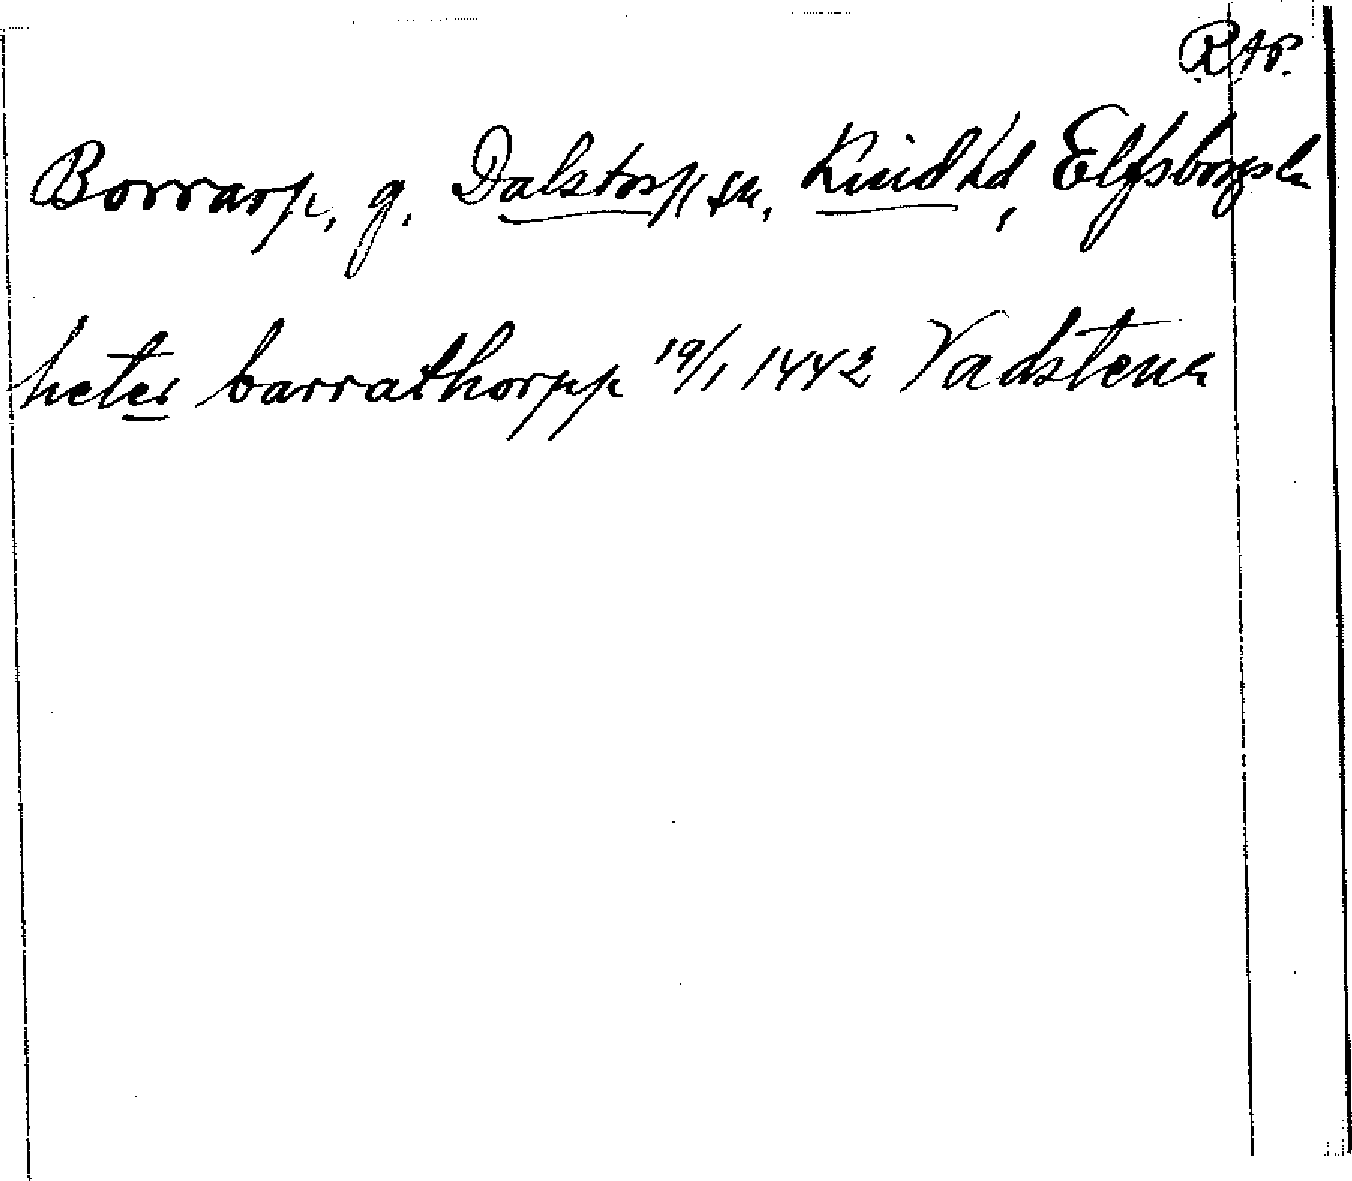 RAP.
Borrarp, g. Dalstorp sn, Kind hd, Elfsborgs län
heter barrathorpp 19/1 1442 Vadstena